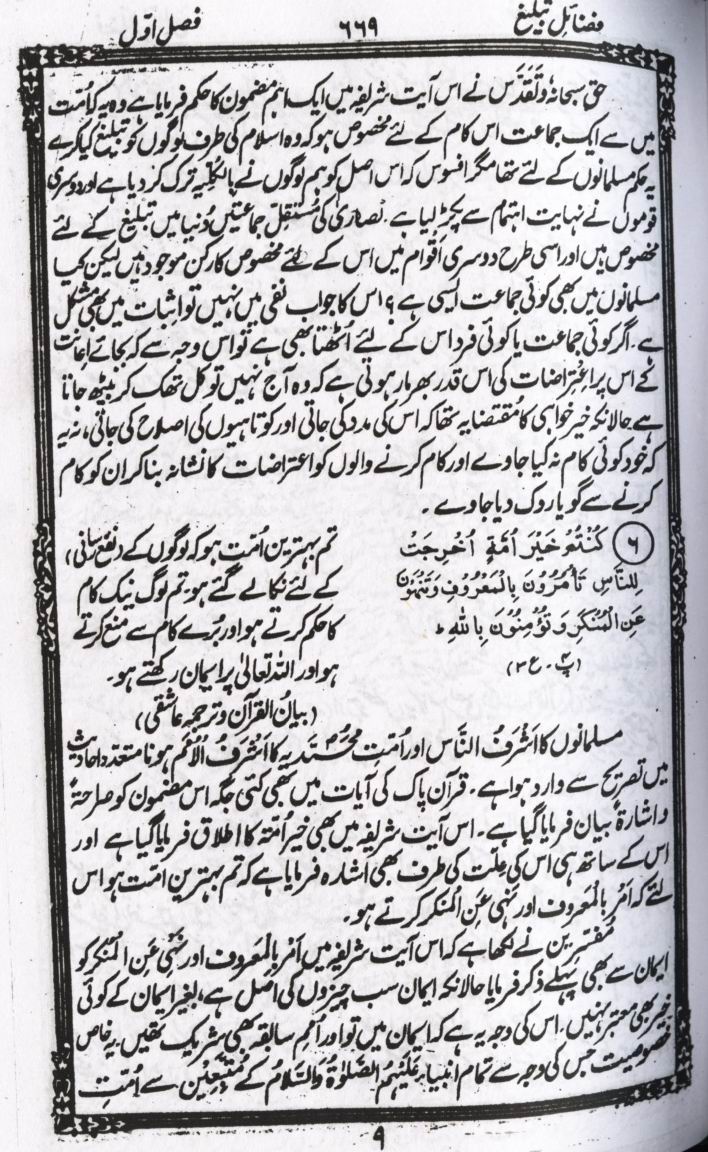 فضائل تبلیغ
۶۶۹
فصل اوّل
حق سبحانہٗ وتقدّس نے اس آیت شریفہ میں ایک اہم مضمون کا حکم فرمایا ہے وہ یہ کہ اُمّت
میں سے ایک جماعت اس کام کے لئے مخصوص ہو کہ وہ اسلام کی طرف لوگوں کو تبلیغ کیا کرے
یہ حکم مسلمانوں کے لئے تھا مگر افسوس کہ اس اصل کو ہم لوگوں نے بالکلیہ ترک کر دیا ہے اور دوسری
قوموں نے نہایت اہتمام سے پکڑ لیا ہے۔ نصاریٰ کی مستقل جماعتیں دُنیا میں تبلیغ کے لئے
مخصوص ہیں اور اسی طرح دوسری اقوام میں اس کے لئے مخصوص کارکن موجود ہیں لیکن کیا
مسلمانوں میں بھی کوئی جماعت ایسی ہے؟ اس کا جواب نفی میں نہیں تو اثبات میں بھی مشکل
ہے۔ اگر کوئی جماعت یا کوئی فرد اس کے لئے اُٹھتا بھی ہے تو اس وجہ سے کہ بجائے اعانت
کے اس پر اعتراضات کی اس قدر بھرمار ہوتی ہے کہ وہ آج نہیں تو کل تھک کر بیٹھ جاتا
ہے حالانکہ خیر خواہی کا مقتضا یہ تھا کہ اس کی مدد کی جاتی اور کوتاہیوں کی اصلاح کی جاتی، نہ یہ
کہ خود کوئی کام نہ کیا جاوے اور کام کرنے والوں کو اعتراضات کا نشانہ بنا کر ان کو کام
کرنے سے گویا روک دیا جاوے۔
۶ كُنْتُمْ خَيْرَ اُمَّةٍ اُخْرِجَتْ
لِلنَّاسِ تَأْمُرُوْنَ بِالْمَعْرُوْفِ وَتَنْهَوْنَ
عَنِ الْمُنْكَرِ وَتُؤْمِنُوْنَ بِاللهِ ط
(پ۴۔ ع۳)
تم بہترین اُمّت ہو کہ لوگوں کے (نفع رسانی)
کے لئے نکالے گئے ہو، تم لوگ نیک کام
کا حکم کرتے ہو اور بُرے کام سے منع کرتے
ہو اور اللہ تعالیٰ پر ایمان رکھتے ہو۔
(بیانُ القرآن و ترجمہ عاشقی)
مسلمانوں کا اشرفُ النّاس اور اُمّت محمّدیہ کا اشرفُ الاُمَم ہونا متعدد احادیث
میں تصریح سے وارد ہوا ہے۔ قرآن پاک کی آیات میں بھی کئی جگہ اس مضمون کو صراحۃً
واشارۃً بیان فرمایا گیا ہے۔ اس آیت شریفہ میں بھی خیر اُمّۃ کا اطلاق فرمایا گیا ہے اور
اس کے ساتھ ہی اس کی علّت کی طرف بھی اشارہ فرمایا ہے کہ تم بہترین اُمّت ہو اس
لئے کہ امر بالمعروف اور نہی عن المنکر کرتے ہو۔
مفسّرین نے لکھا ہے کہ اس آیت شریفہ میں امر بالمعروف اور نہی عن المنکر کو
ایمان سے بھی پہلے ذکر فرمایا حالانکہ ایمان سب چیزوں کی اصل ہے، بغیر ایمان کے کوئی
خیر بھی معتبر نہیں۔ اس کی وجہ یہ ہے کہ ایمان میں تو اور اُمم سابقہ بھی شریک تھیں۔ یہ خاص
خصوصیت جس کی وجہ سے تمام انبیاء علیہم الصلوٰۃ والسلام کے متبعین سے اُمّت
۹